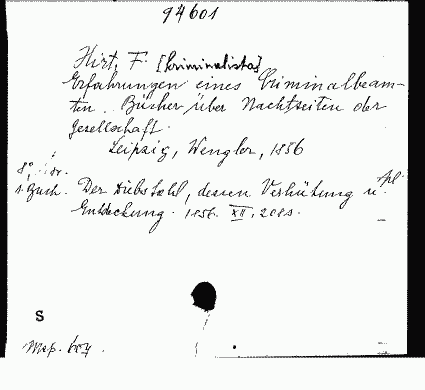 94601
Hirt, F. [kriminalista]
Erfahrungen eines Criminalbeam-
ten. Bücher über Nachtseiten der
Gesellschaft.
Leipzig, Wengler, 1856
8°,
1. Buch. Der Diebstahl, dessen Verhütung u.
Entdeckung. 1856. XII, 208 S.
S